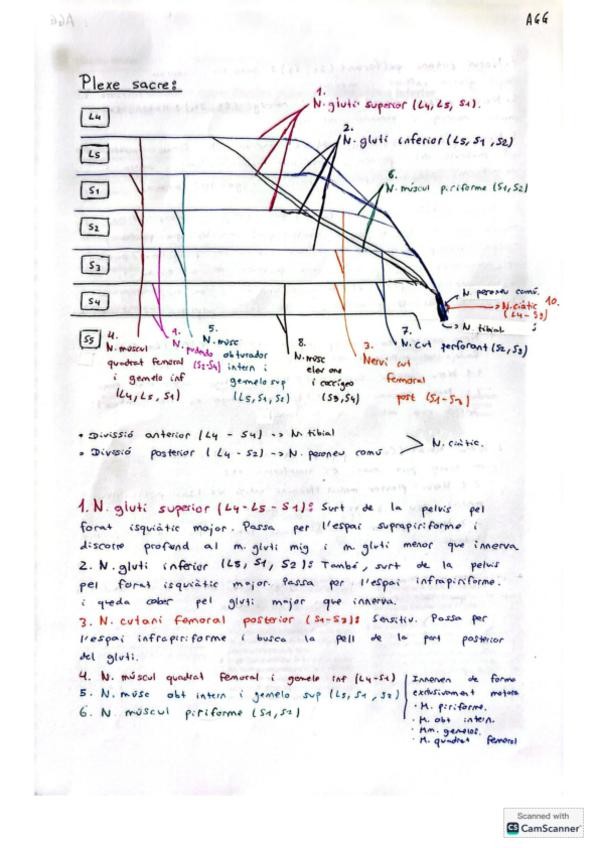 AGG
Plexe sacre:
L4
L5
S1
S2
S3
S4
S5
1.
N. gluti superior (L4, L5, S1).
2.
N. gluti inferior (L5, S1, S2)
6.
N. múscul piriforme (S1, S2)
N. peroneu comú.
10.
N. ciàtic
(L4-S3)
N. tibial
4.
N. múscul
quadrat femoral
i gemelo inf
(L4, L5, S1)
N. pudendo
(S2-S4)
5.
N. músc
obturador
intern i
gemelo sup
(L5, S1, S2)
8.
N. músc
elev ano
i coccigeo
(S3, S4)
3.
Nervi cut
femoral
post (S1-S3)
7.
N. cut perforant (S2, S3)
• Divissió anterior (L4 - S4) --> N. tibial
• Divisió posterior (L4 - S2) --> N. peroneu comú
N. ciàtic.
1. N. gluti superior (L4-L5-S1): Surt de la pelvis pel
forat isquiàtic major. Passa per l'espai suprapiriforme i
discorre profund al m. gluti mig i m. gluti menor que innerva
2. N. gluti inferior (L5, S1, S2): També, surt de la pelvis
pel forat isquiàtic major. Passa per l'espai infrapiriforme.
i queda cober pel gluti major que innerva.
3. N. cutani femoral posterior (S1-S3): Sensitiu. Passa per
l'espai infrapiriforme i busca la pell de la part posterior
del gluti.
4. N. múscul quadrat femoral i gemelo inf (L4-S1)
5. N. músc obt intern i gemelo sup (L5, S1, S2)
6. N. múscul piriforme (S1, S2)
Innerven de forma
exclusivament motora
· M. piriforme.
· M. obt intern.
· Mm. gemelos.
· M. quadrat femoral
Scanned with
CS CamScanner